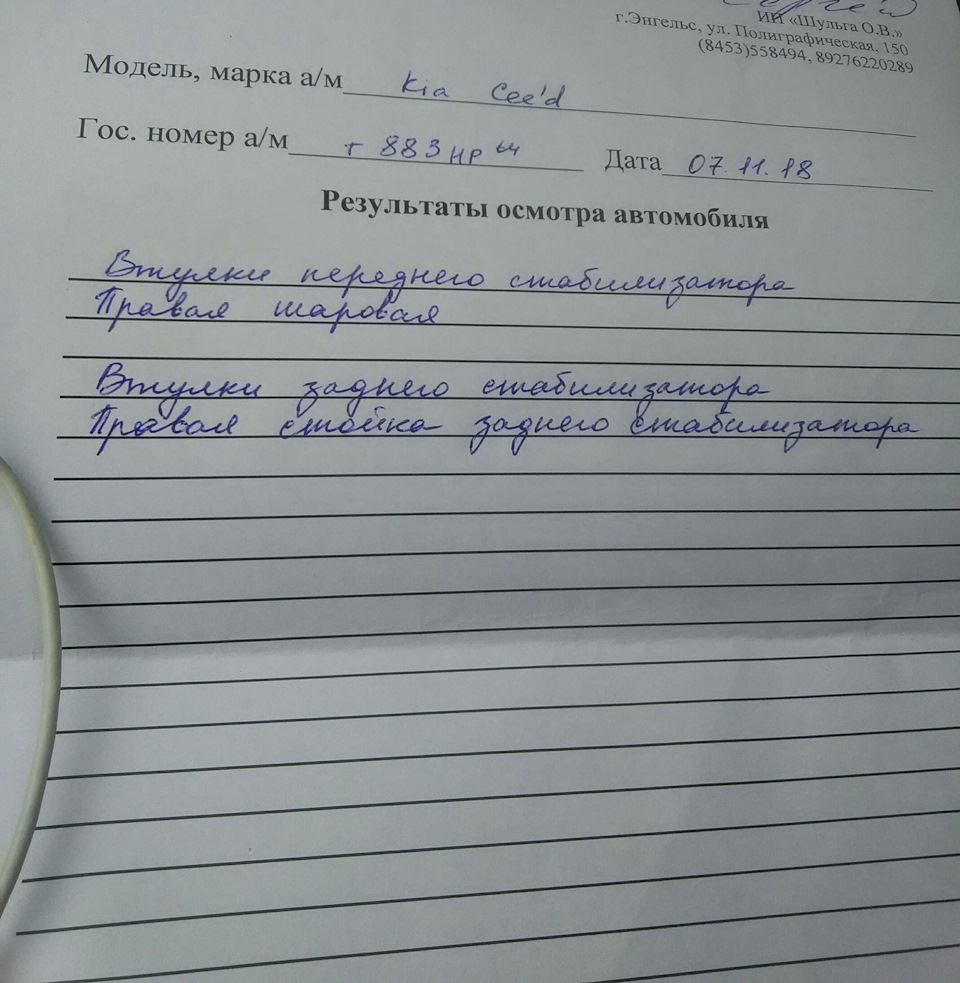 Сергей
ИП «Шульга О.В.»
г.Энгельс, ул. Полиграфическая, 150
(8453)558494, 89276220289
Модель, марка а/м Kia Cee'd
Гос. номер а/м т 883 НР 64 Дата 07.11.18
Результаты осмотра автомобиля
Втулки переднего стабилизатора
Правая шаровая
Втулки заднего стабилизатора
Правая стойка заднего стабилизатора